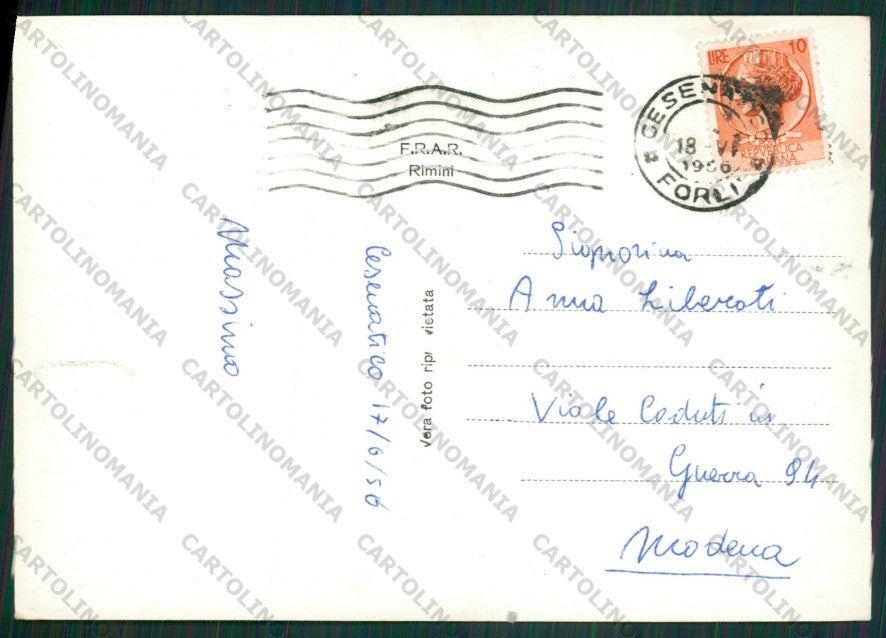 LIRE 10
REPUBBLICA
CESEN
18 VI
1956
FORLI
F.R.A.R.
Rimini
Massimo
Cesenatico 17/6/56
Vera foto ripr vietata
Signorina
Anna Liberati
Viale Caduti in
Guerra 94
Modena
CARTOLINOMANIA